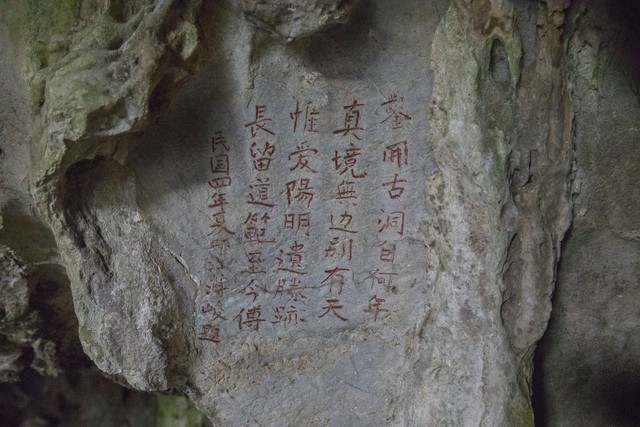 鑿開古洞自何年
真境無边别有天
惟爱陽明遺勝跡
長留道範至今傳
民国四年夏 峻題